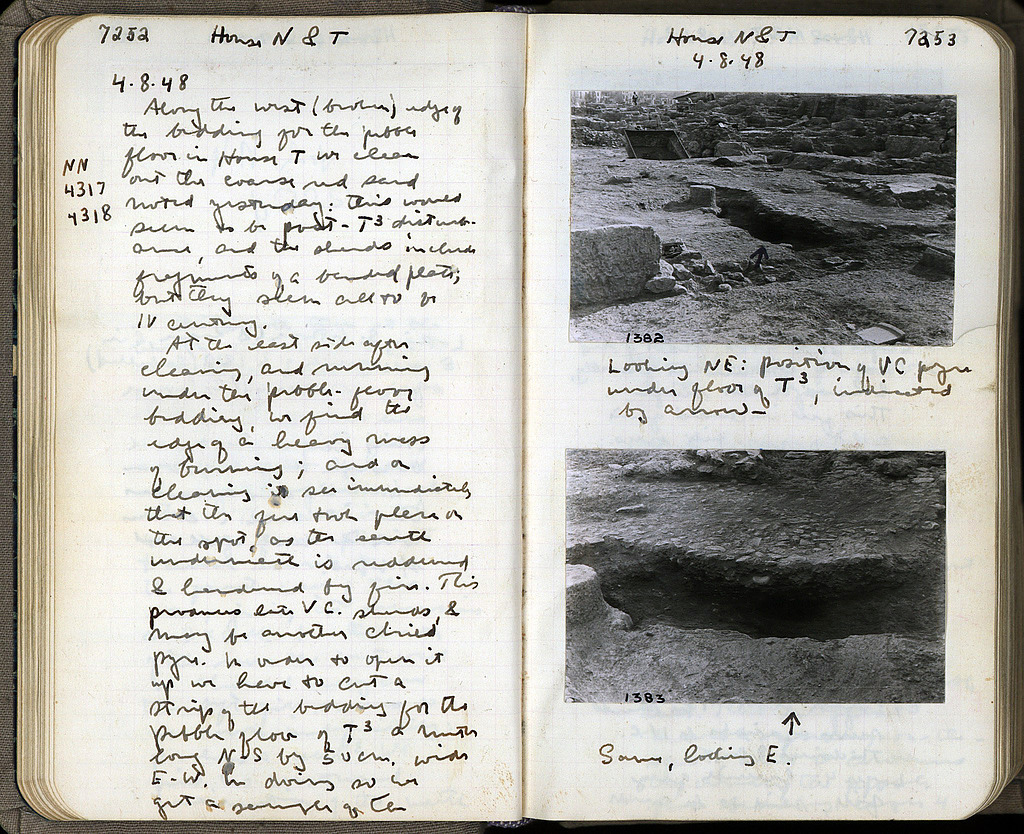 7252 House N & T
4.8.48
Along the west (broken) edge of
the bedding for the pebble
floor in House T we clean
NN
4317
4318
out the coarse red sand
noted yesterday: this would
seem to be post-T³ disturb-
ance, and the sherds include
fragments of a banded plate;
but they seem all to be
IV century.
At the east side after
cleaning, and running
under the pebble-floor
bedding, we find the
edge of a heavy mess
of burning; and on
cleaning it see immediately
that the fire took place on
the spot, as the earth
underneath is reddened
& hardened by fire. This
produces late V C. sherds, &
may be another child
pyre. In order to open it
up we have to cut a
strip of the bedding for the
pebble floor of T³ a meter
long N-S by 50 cm. wide
E-W. In doing so we
get a sample of the
House N & T 7253
4.8.48
1382
Looking NE: position of VC pyre
under floor of T³, indicated
by arrow—
1383
Same, looking E.